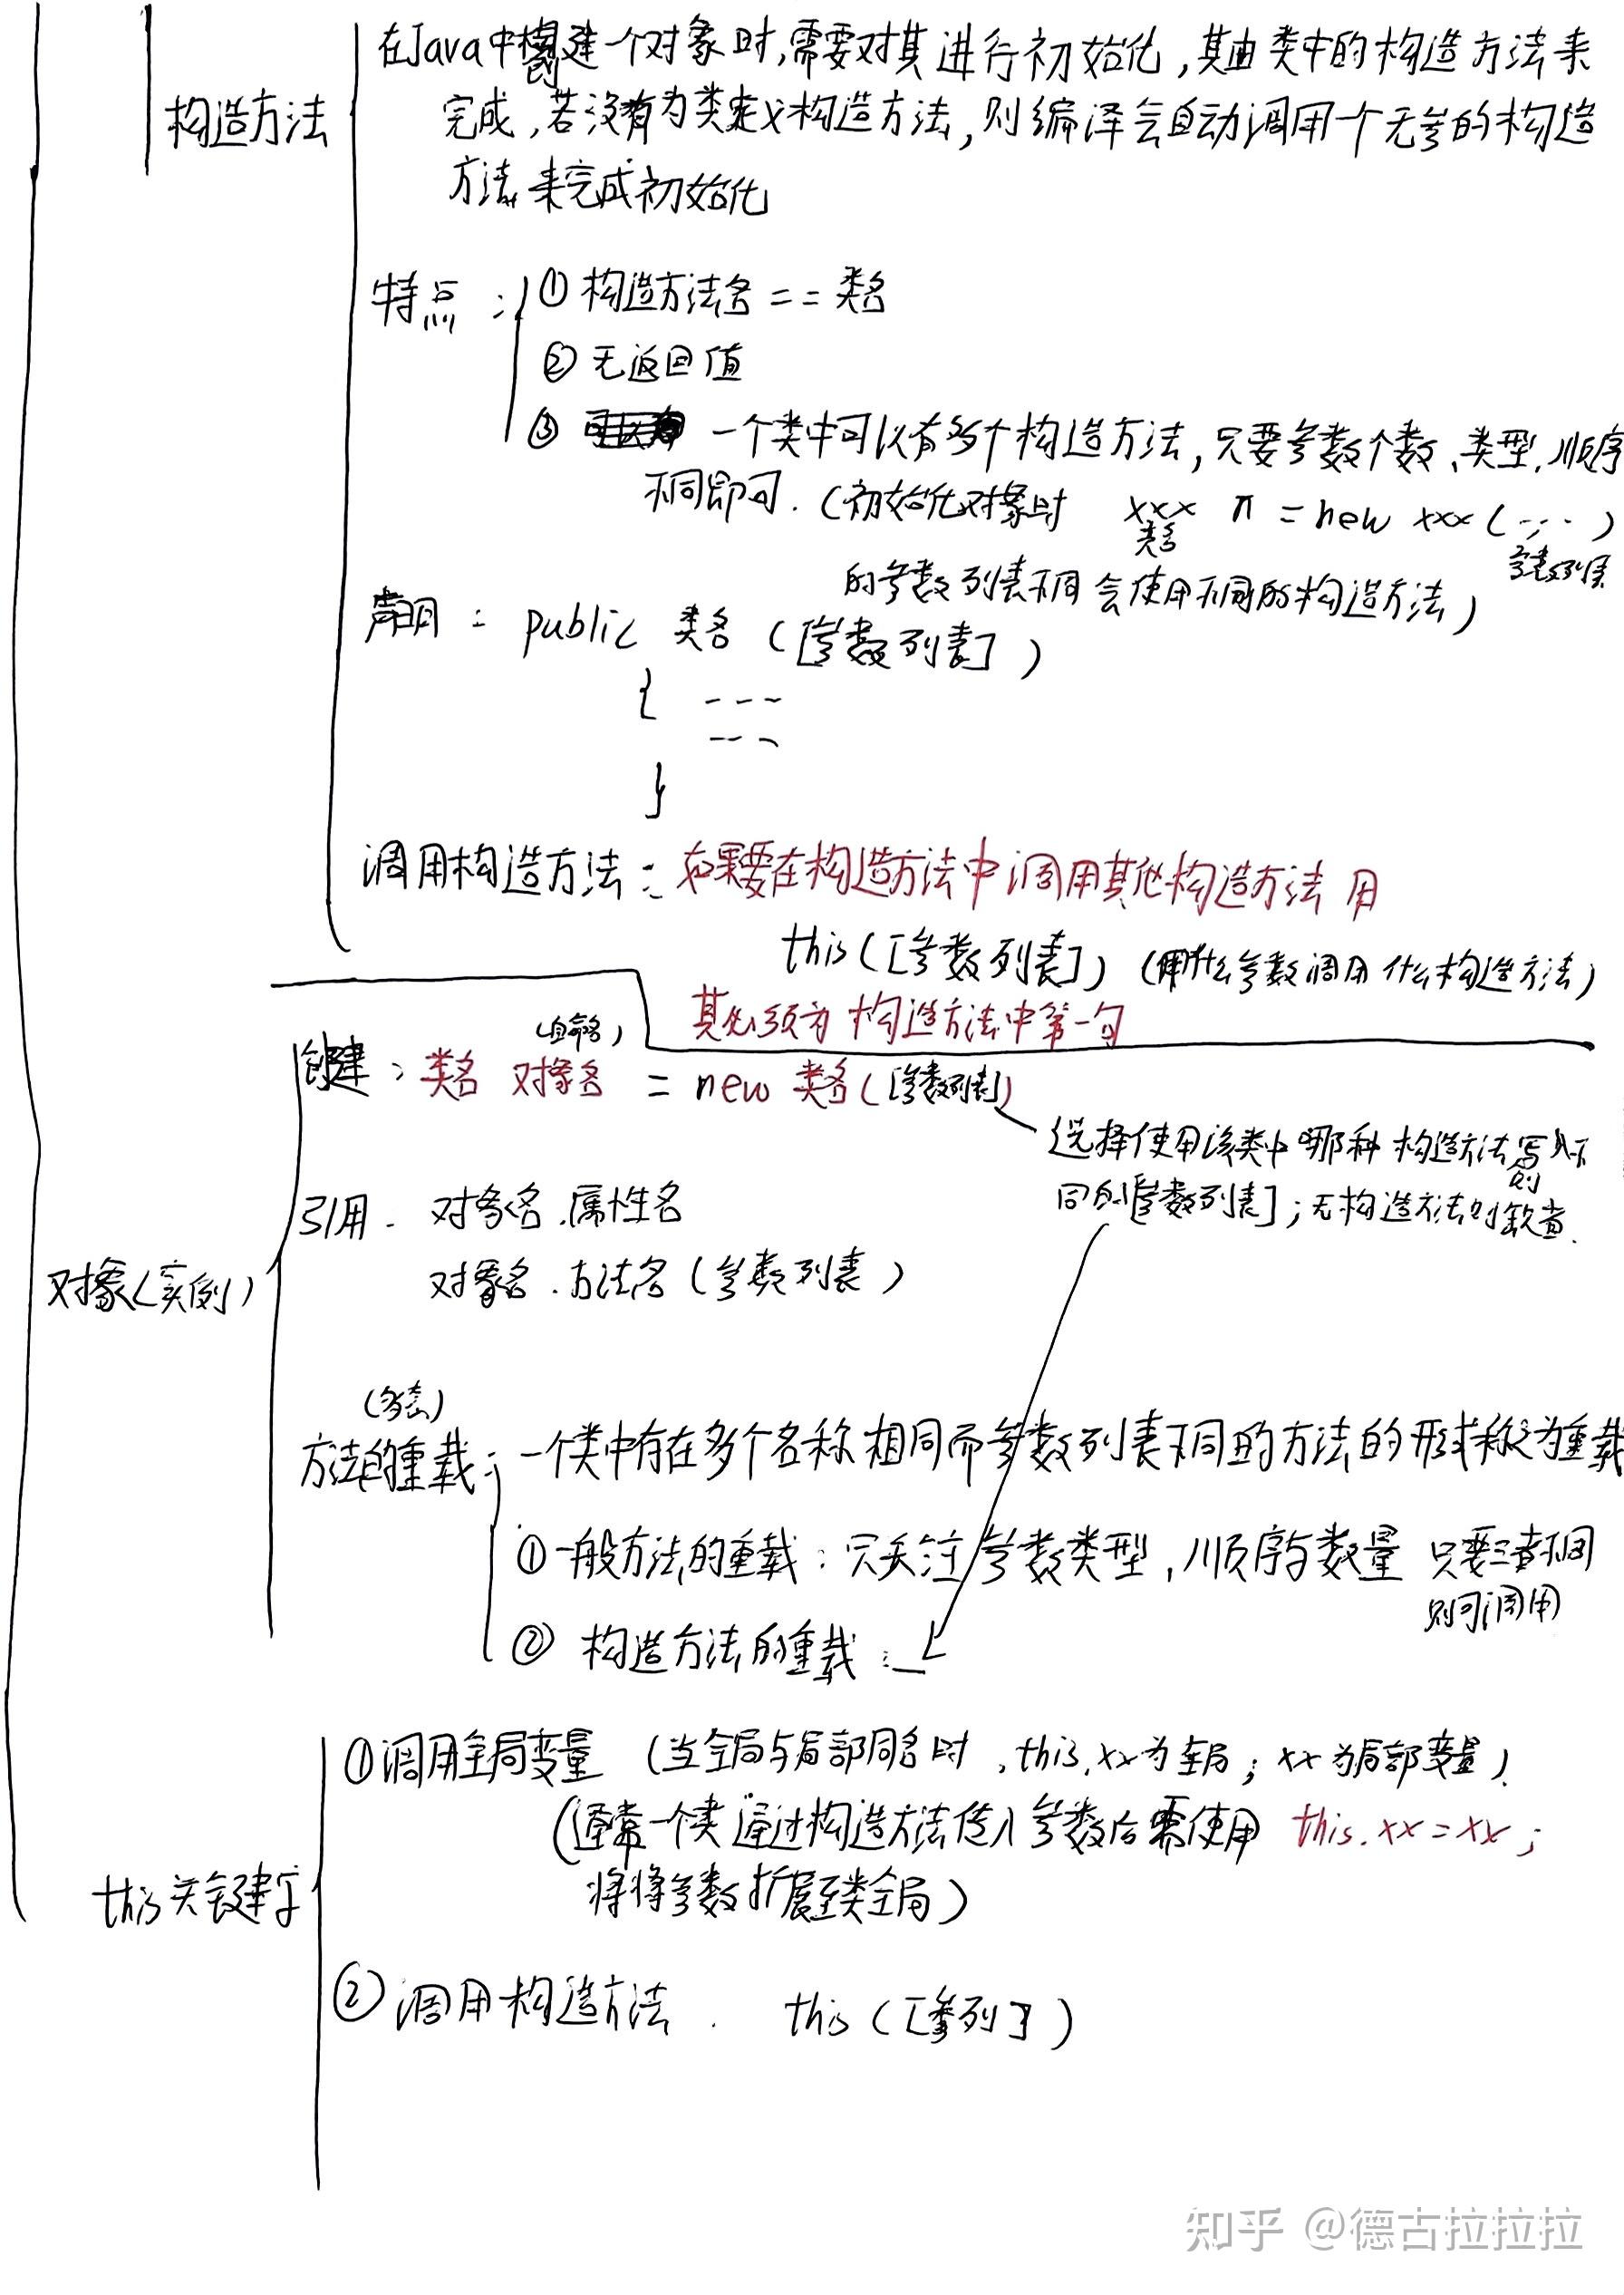 构造方法
在Java中创建一个对象时,需要对其进行初始化,其由类中的构造方法来
完成,若没有为类定义构造方法,则编译会自动调用一个无参的构造
方法来完成初始化
特点:① 构造方法名 == 类名
② 无返回值
③ 一个类中可以有多个构造方法,只要参数个数、类型,顺序
不同即可.(初始化对象时 xxx n = new xxx(....)
类名 参数列表
的参数列表不同会使用不同的构造方法)
声明: public 类名([参数列表])
{ ---
---
}
调用构造方法:如果要在构造方法中调用其他构造方法 用
this([参数列表])(用什么参数调用什么构造方法)
其必须为构造方法中第一句
(自命名)
创建:类名 对象名 = new 类名([参数列表])
选择使用该类中哪种构造方法则写不
同的[参数列表];无构造方法则缺省.
引用. 对象名.属性名
对象名.方法名(参数列表)
对象(实例)
(多态)
方法的重载:一个类中存在多个名称相同而参数列表不同的方法的形式称之为重载
①一般方法的重载:只关注参数类型,顺序与数量 只要三者不同
则可调用
② 构造方法的重载:
①调用全局变量 (当全局与局部同名时,this.xx为全局;xx为局部变量)
(通常一个类通过构造方法传入参数后需使用 this.xx=xx;
将将参数扩展至类全局)
this关键字
②调用构造方法. this([参列])
知乎 @德古拉拉拉